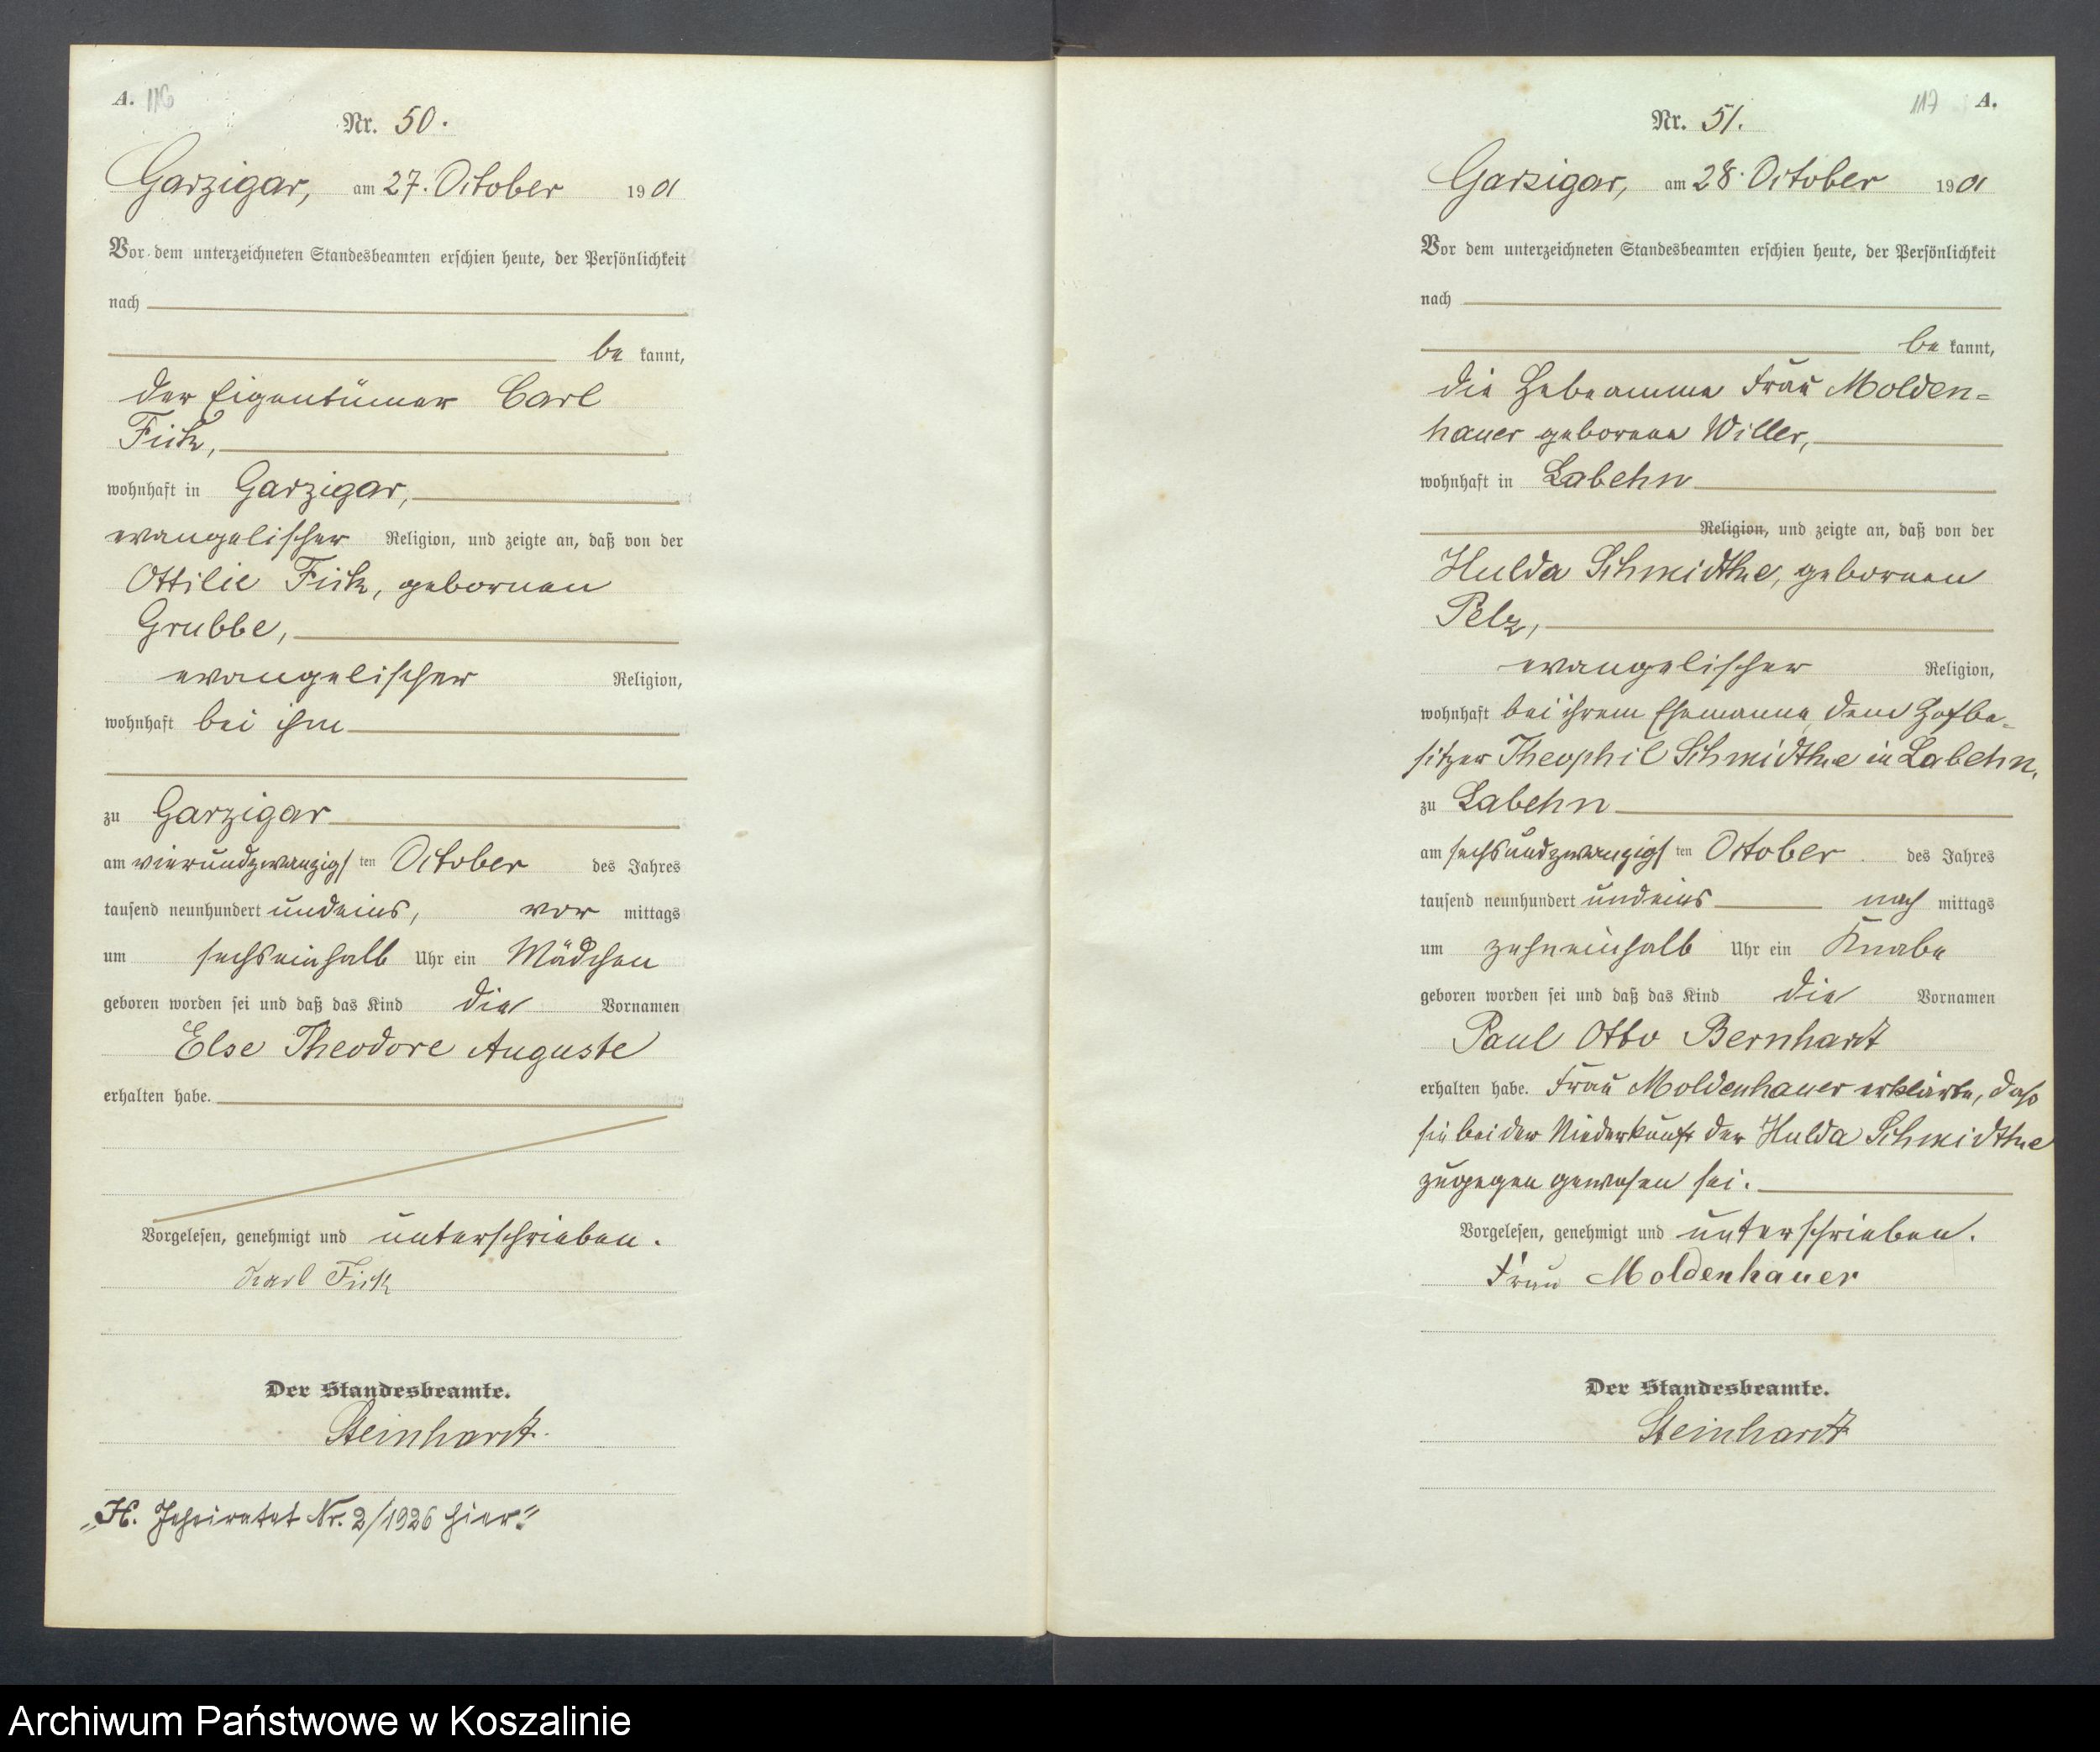 A. 116
Nr. 50.
Garzigar, am 27. October 1901
Vor dem unterzeichneten Standesbeamten erschien heute, der Persönlichkeit
nach
be kannt,
der Eigentümer Carl
Fick,
wohnhaft in Garzigar,
evangelischer Religion, und zeigte an, daß von der
Ottilie Fick, gebornen
Grubbe,
evangelischer Religion,
wohnhaft bei ihm
zu Garzigar
am vierundzwanzigsten October des Jahres
tausend neunhundert undeins, vor mittags
um sechseinhalb Uhr ein Mädchen
geboren worden sei und daß das Kind die Vornamen
Else Theodore Auguste
erhalten habe.
Vorgelesen, genehmigt und unterschrieben.
Karl Fick
Der Standesbeamte.
Steinhardt.
„H. Geheiratet Nr. 2/1926 hier."
117 A.
Nr. 51.
Garzigar, am 28. October 1901
Vor dem unterzeichneten Standesbeamten erschien heute, der Persönlichkeit
nach
be kannt,
die Hebeamme Frau Molden=
hauer geborene Willer,
wohnhaft in Labehn
Religion, und zeigte an, daß von der
Hulda Schmidthe, gebornen
Pelz,
evangelischer Religion,
wohnhaft bei ihrem Ehemanne, dem Hofbe=
sitzer Theophil Schmidthe in Labehn,
zu Labehn
am sechsundzwanzigsten October des Jahres
tausend neunhundert undeins nach mittags
um zehneinhalb Uhr ein Knabe
geboren worden sei und daß das Kind die Vornamen
Paul Otto Bernhardt
erhalten habe. Frau Moldenhauer erklärte, daß
sie bei der Niederkunft der Hulda Schmidthe
zugegen gewesen sei.
Vorgelesen, genehmigt und unterschrieben.
Frau Moldenhauer
Der Standesbeamte.
Steinhardt
Archiwum Państwowe w Koszalinie